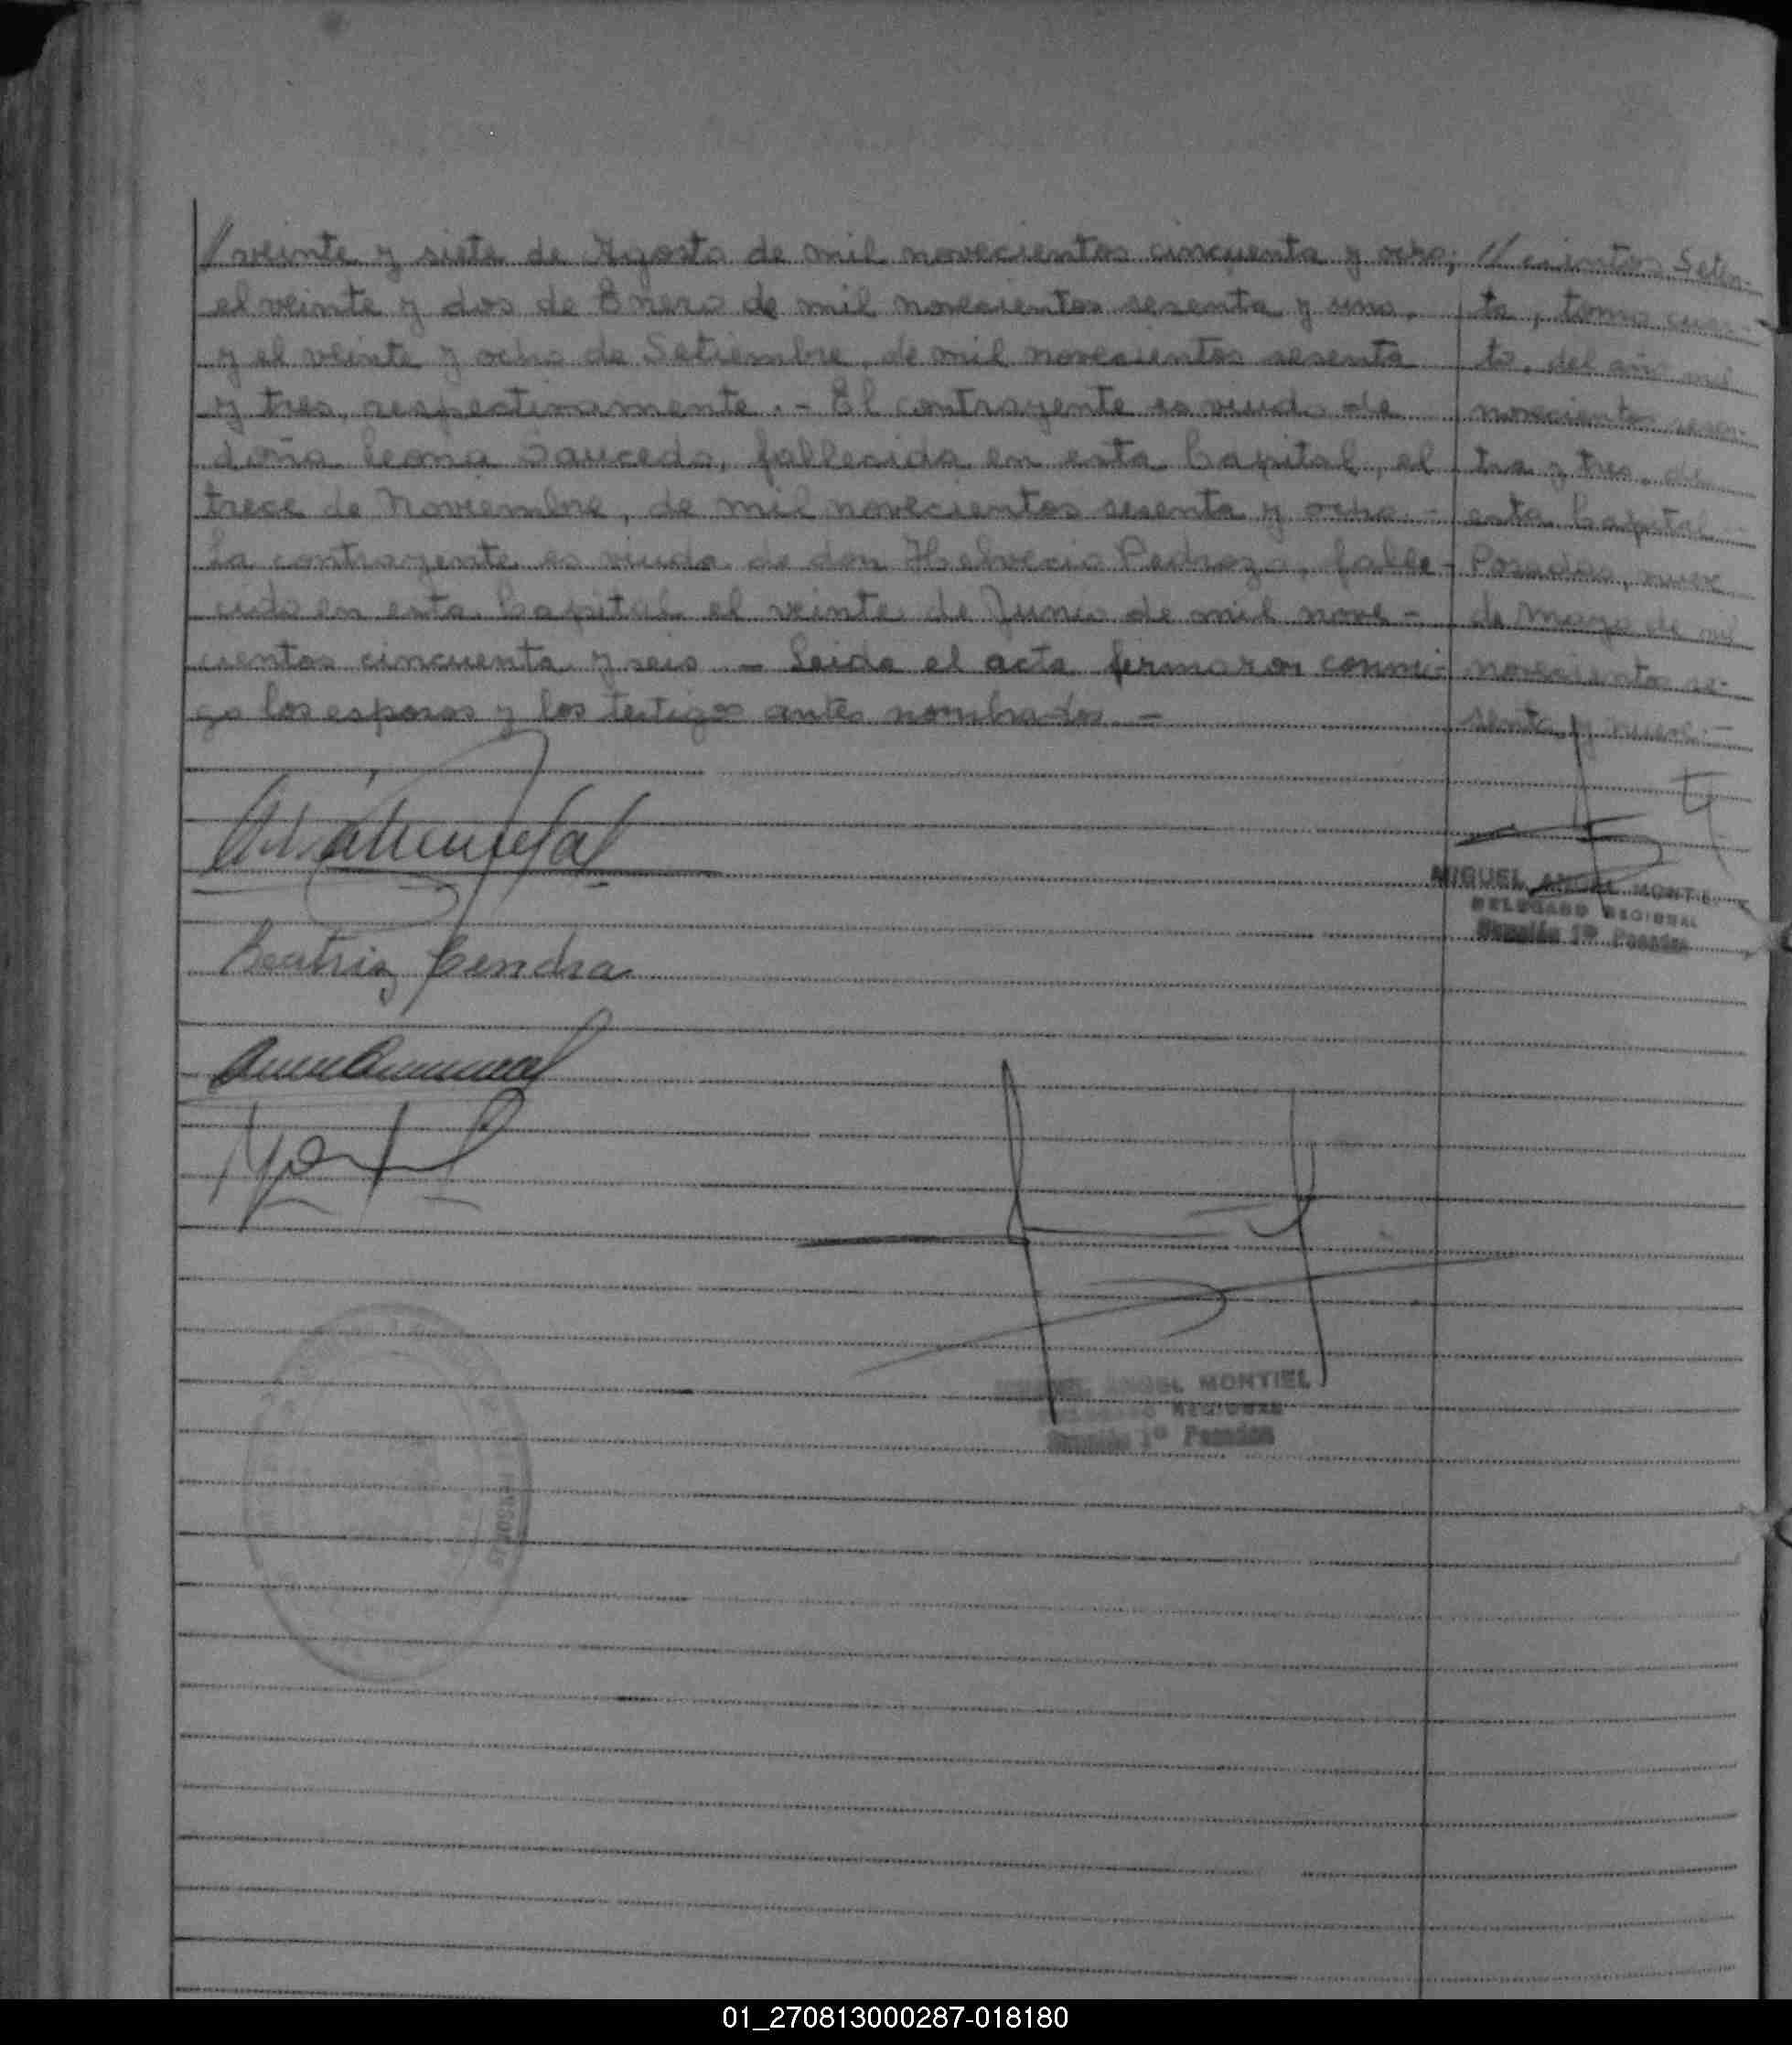 // veinte y siete de Agosto de mil novecientos cincuenta y ocho;
el veinte y dos de Enero de mil novecientos sesenta y uno,
y el veinte y ocho de Setiembre, de mil novecientos sesenta
y tres, respectivamente. - El contrayente es viudo de
doña Leona Saucedo, fallecida en esta Capital, el
trece de Noviembre, de mil novecientos sesenta y ocho -
La contrayente es viuda de don Helvecio Pedrozo, falle-
cido en esta Capital el veinte de Junio de mil nove-
cientos cincuenta y seis - Leida el acta firmaron conmi-
go los esposos y los testigos antes nombrados. -
// cientos Seten-
ta, tomo cuar-
to, del año mil
novecientos sesen-
ta y tres, de
esta Capital -
Posadas, nueve
de Mayo de mil
novecientos se-
senta y nueve. -
MIGUEL ANGEL MONTIEL
DELEGADO REGIONAL
Sección 1ª Posadas
Beatriz Cendra
MIGUEL ANGEL MONTIEL
DELEGADO REGIONAL
Sección 1ª Posadas
MISIONES
01_270813000287-018180